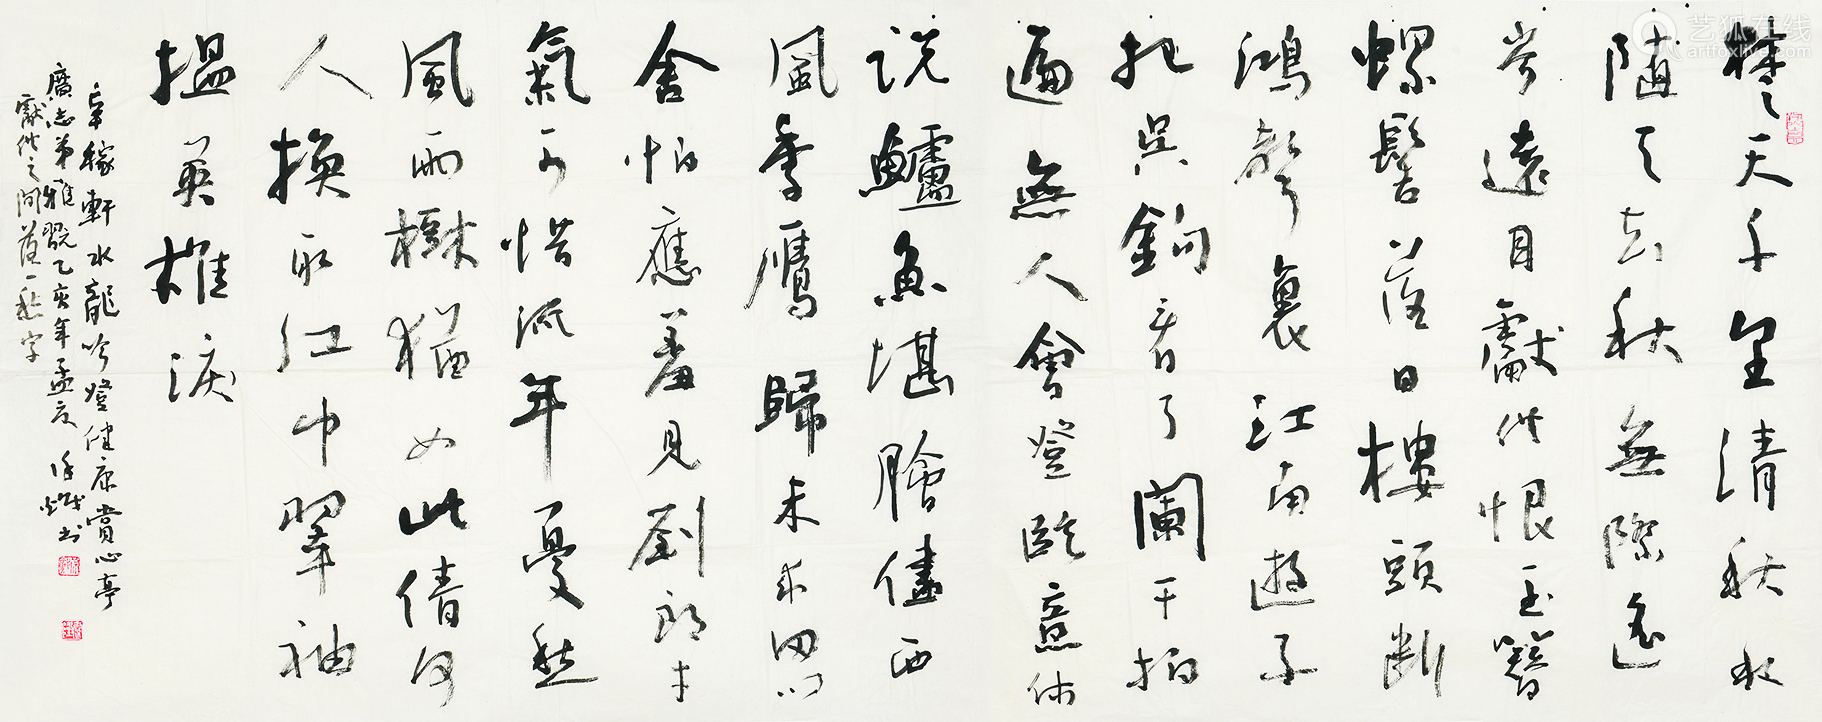 楚天千里清秋水
随天去秋無際遥
岑遠目獻供恨玉簪
螺髻落日樓頭斷
鴻聲裏江南遊子
把吳鉤看了闌干拍
遍無人會登臨意休
説鱸魚堪膾儘西
風季鷹歸未求田問
舍怕應羞見劉郎才
氣可惜流年憂愁
風雨樹猶如此倩何
人換取紅巾翠袖
揾英雄淚
辛稼軒水龍吟登健康賞心亭
廣志弟雅翫乙亥年孟夏
獻供之間落一愁字
艺狐在线
artfoxlive.com